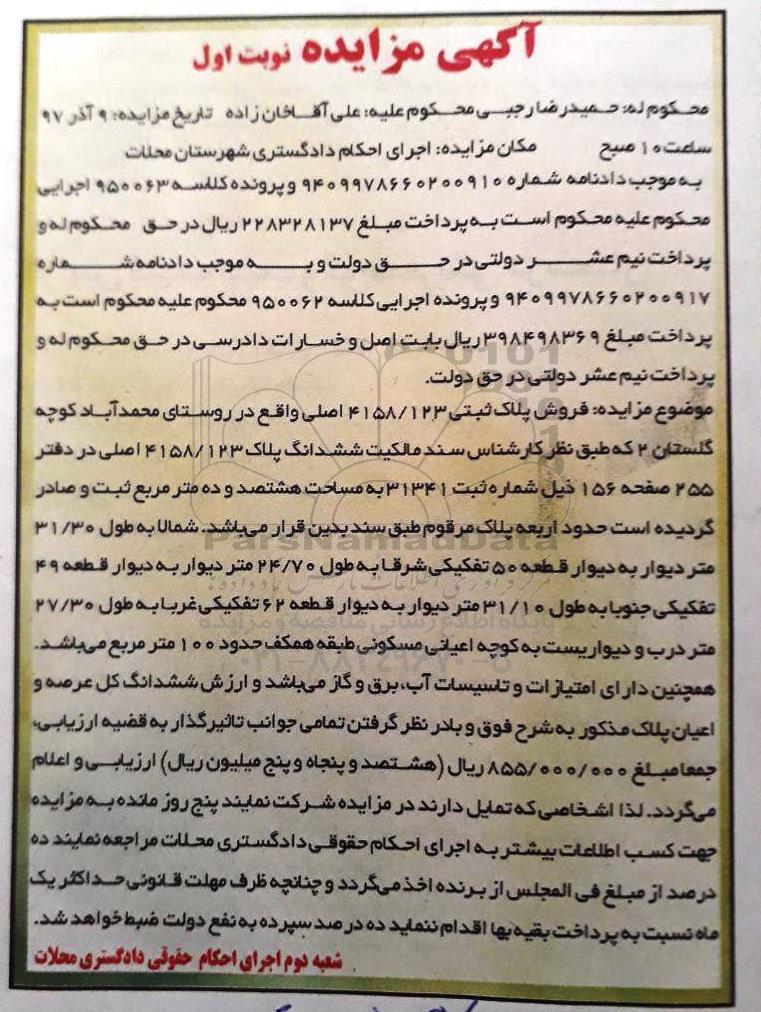 آگهی مزایده نوبت اول
محکوم له: حمیدرضا رجبی محکوم علیه: علی آقاخان زاده تاریخ مزایده: ۹ آذر ۹۷
ساعت ۱۰ صبح مکان مزایده: اجرای احکام دادگستری شهرستان محلات
به موجب دادنامه شماره ۹۴۰۹۹۷۸۶۶۰۲۰۰۹۱۰ و پرونده کلاسه ۹۵۰۰۶۳ اجرایی
محکوم علیه محکوم است به پرداخت مبلغ ۲۲۸۳۲۸۱۳۷ ریال در حق محکوم له و
پرداخت نیم عشر دولتی در حق دولت و به موجب دادنامه شماره
۹۴۰۹۹۷۸۶۶۰۲۰۰۹۱۷ و پرونده اجرایی کلاسه ۹۵۰۰۶۲ محکوم علیه محکوم است به
پرداخت مبلغ ۳۹۸۴۹۸۳۶۹ ریال بابت اصل و خسارات دادرسی در حق محکوم له و
پرداخت نیم عشر دولتی در حق دولت.
موضوع مزایده: فروش پلاک ثبتی ۴۱۵۸/۱۲۳ اصلی واقع در روستای محمدآباد کوچه
گلستان ۲ که طبق نظر کارشناس سند مالکیت ششدانگ پلاک ۴۱۵۸/۱۲۳ اصلی در دفتر
۲۵۵ صفحه ۱۵۶ ذیل شماره ثبت ۳۱۳۴۱ به مساحت هشتصد و ده متر مربع ثبت و صادر
گردیده است حدود اربعه پلاک مرقوم طبق سند بدین قرار می‌باشد. شمالا به طول ۳۱/۳۰
متر دیوار به دیوار قطعه ۵۰ تفکیکی شرقا به طول ۲۴/۷۰ متر دیوار به دیوار قطعه ۴۹
تفکیکی جنوبا به طول ۳۱/۱۰ متر دیوار به دیوار قطعه ۶۲ تفکیکی غربا به طول ۲۷/۳۰
متر درب و دیواریست به کوچه اعیانی مسکونی طبقه همکف حدود ۱۰۰ متر مربع می‌باشد.
همچنین دارای امتیازات و تاسیسات آب، برق و گاز می‌باشد و ارزش ششدانگ کل عرصه و
اعیان پلاک مذکور به شرح فوق و بادر نظر گرفتن تمامی جوانب تاثیرگذار به قضیه ارزیابی،
جمعا مبلغ ۸۵۵/۰۰۰/۰۰۰ ریال (هشتصد و پنجاه و پنج میلیون ریال) ارزیابی و اعلام
می‌گردد. لذا اشخاصی که تمایل دارند در مزایده شرکت نمایند پنج روز مانده به مزایده
جهت کسب اطلاعات بیشتر به اجرای احکام حقوقی دادگستری محلات مراجعه نمایند ده
درصد از مبلغ فی المجلس از برنده اخذ می‌گردد و چنانچه ظرف مهلت قانونی حداکثر یک
ماه نسبت به پرداخت بقیه بها اقدام ننماید ده درصد سپرده به نفع دولت ضبط خواهد شد.
شعبه دوم اجرای احکام حقوقی دادگستری محلات
ParsNamadData